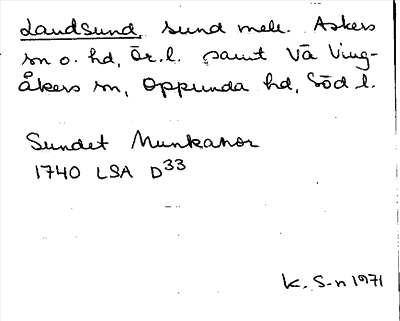 Landsund, sund mell. Askers
sn o. hd, Ör. l. samt Vä Ving-
åkers sn, Oppunda hd, Söd l.
Sundet Munkahor
1740 LSA D33
K. S-n 1971